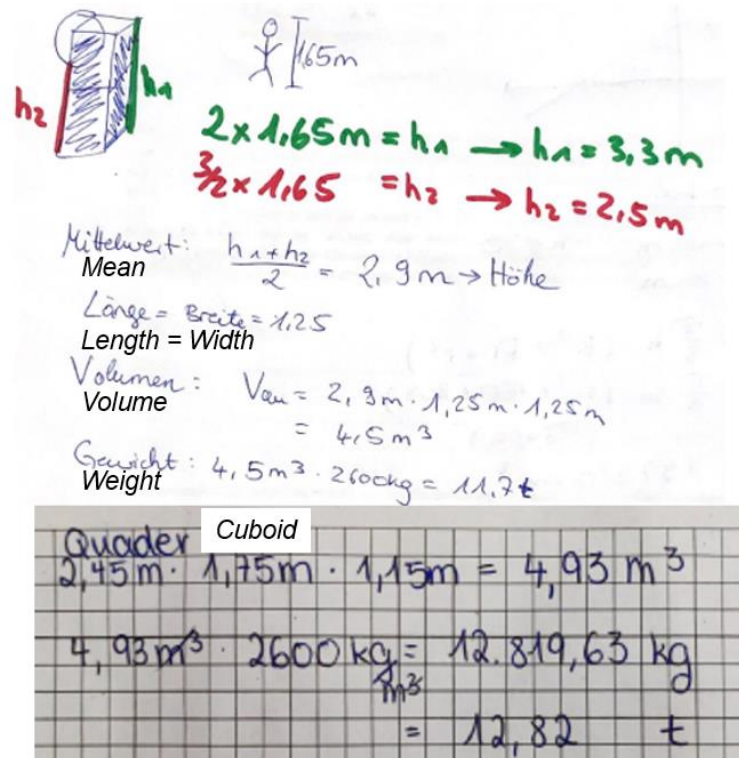 1,65m
h2
h1
2 x 1,65m = h1 → h1 = 3,3m
3/2 x 1,65 = h2 → h2 = 2,5m
Mittelwert: h1+h2/2 = 2,9m → Höhe
Mean
Länge = Breite = 1,25
Length = Width
Volumen: Vau = 2,9m · 1,25m · 1,25m
Volume
= 4,5m³
Gewicht: 4,5m³ · 2600kg = 11,7t
Weight
Quader Cuboid
2,45m · 1,75m · 1,15m = 4,93 m³
4,93m³ · 2600 kg/m³ = 12.819,63 kg
= 12,82 t